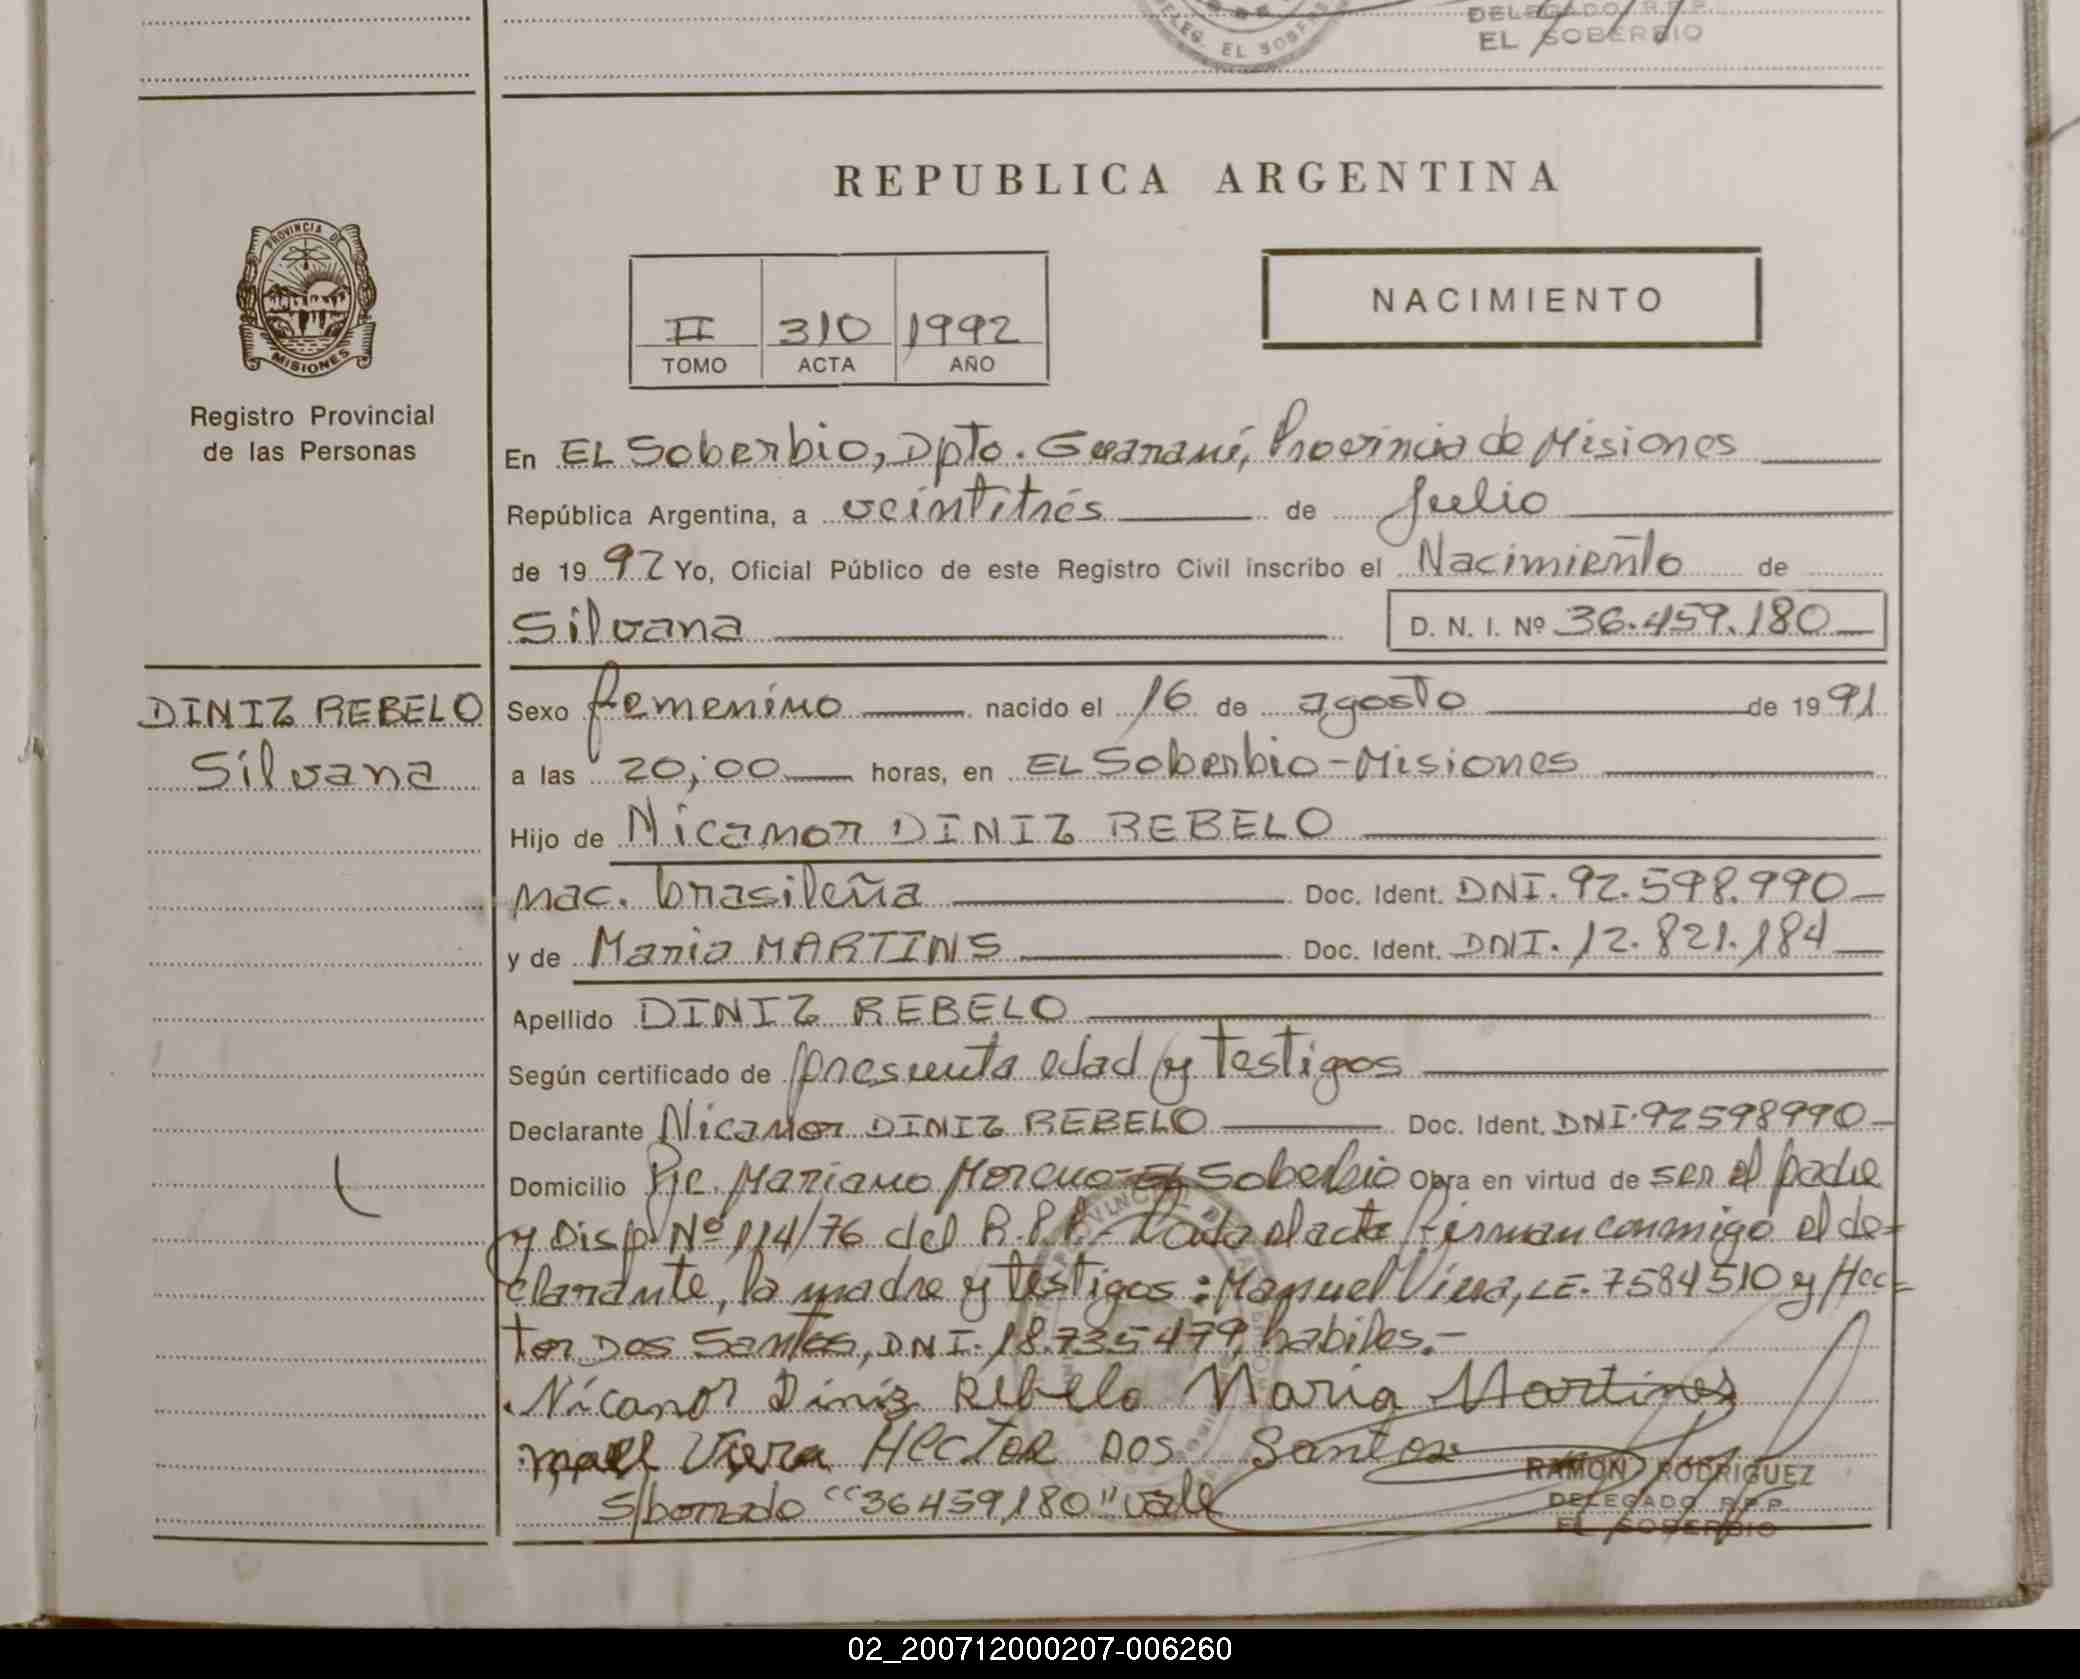 DELEG. EL SOBERB
DELEGADO R.P.P.
EL SOBERBIO
REPUBLICA ARGENTINA
PROVINCIA DE
MISIONES
Registro Provincial
de las Personas
NACIMIENTO
II 310 1992
TOMO ACTA AÑO
En EL Soberbio, Dpto. Guaraní, Provincia de Misiones
República Argentina, a veintitrés de Julio
de 1992 Yo, Oficial Público de este Registro Civil inscribo el Nacimiento de
Silvana D. N. I. Nº 36.459.180
DINIZ REBELO
Silvana
Sexo femenino nacido el 16 de agosto de 1991
a las 20,00 horas, en EL Soberbio-Misiones
Hijo de Nicanor DINIZ REBELO
nac. brasileña Doc. Ident. DNI. 92.598.990
y de Maria MARTINS Doc. Ident. DNI. 12.821.184
Apellido DINIZ REBELO
Según certificado de presunta edad y testigos
Declarante Nicanor DINIZ REBELO Doc. Ident. DNI. 92598990
Domicilio Pje. Mariano Moreno-EL Soberbio Obra en virtud de ser el padre
y Disp Nº 114/76 del R.P.P.- Leida el acta firman conmigo el de=
clarante, la madre y testigos: Manuel Viera, LE. 7584510 y Hec=
tor Dos Santos, DNI. 18.735479, habiles.-
Nicanor Diniz Rebelo Maria Martines
Viera Hector Dos Santos
RAMON RODRIGUEZ
DELEGADO R.P.P.
EL SOBERBIO
S/borrado "36459,180" vale
02_200712000207-006260